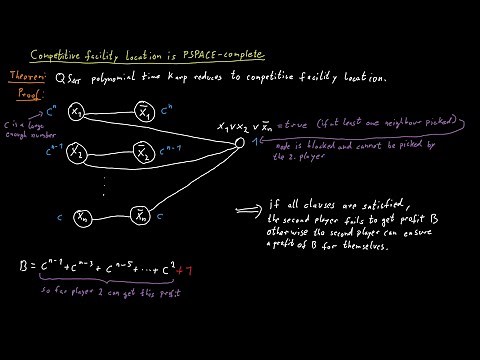 Competitive facility location is PSPACE-complete
Theorem: QSAT polynomial time Karp reduces to competitive facility location.
Proof:
C^n x_1 x̄_1 C^n
C is a large enough number
x_1 ∨ x_2 ∨ x̄_n = true (if at least one neighbour picked)
1
node is blocked and cannot be picked by the 2. player
C^{n-1} x_2 x̄_2 C^{n-1}
⋮
C x_n x̄_n C
⟹ if all clauses are satisfied,
the second player fails to get profit B
otherwise the second player can ensure
a profit of B for themselves.
B = C^{n-1} + C^{n-3} + C^{n-5} + ... + C^2 + 1
so far player 2 can get this profit